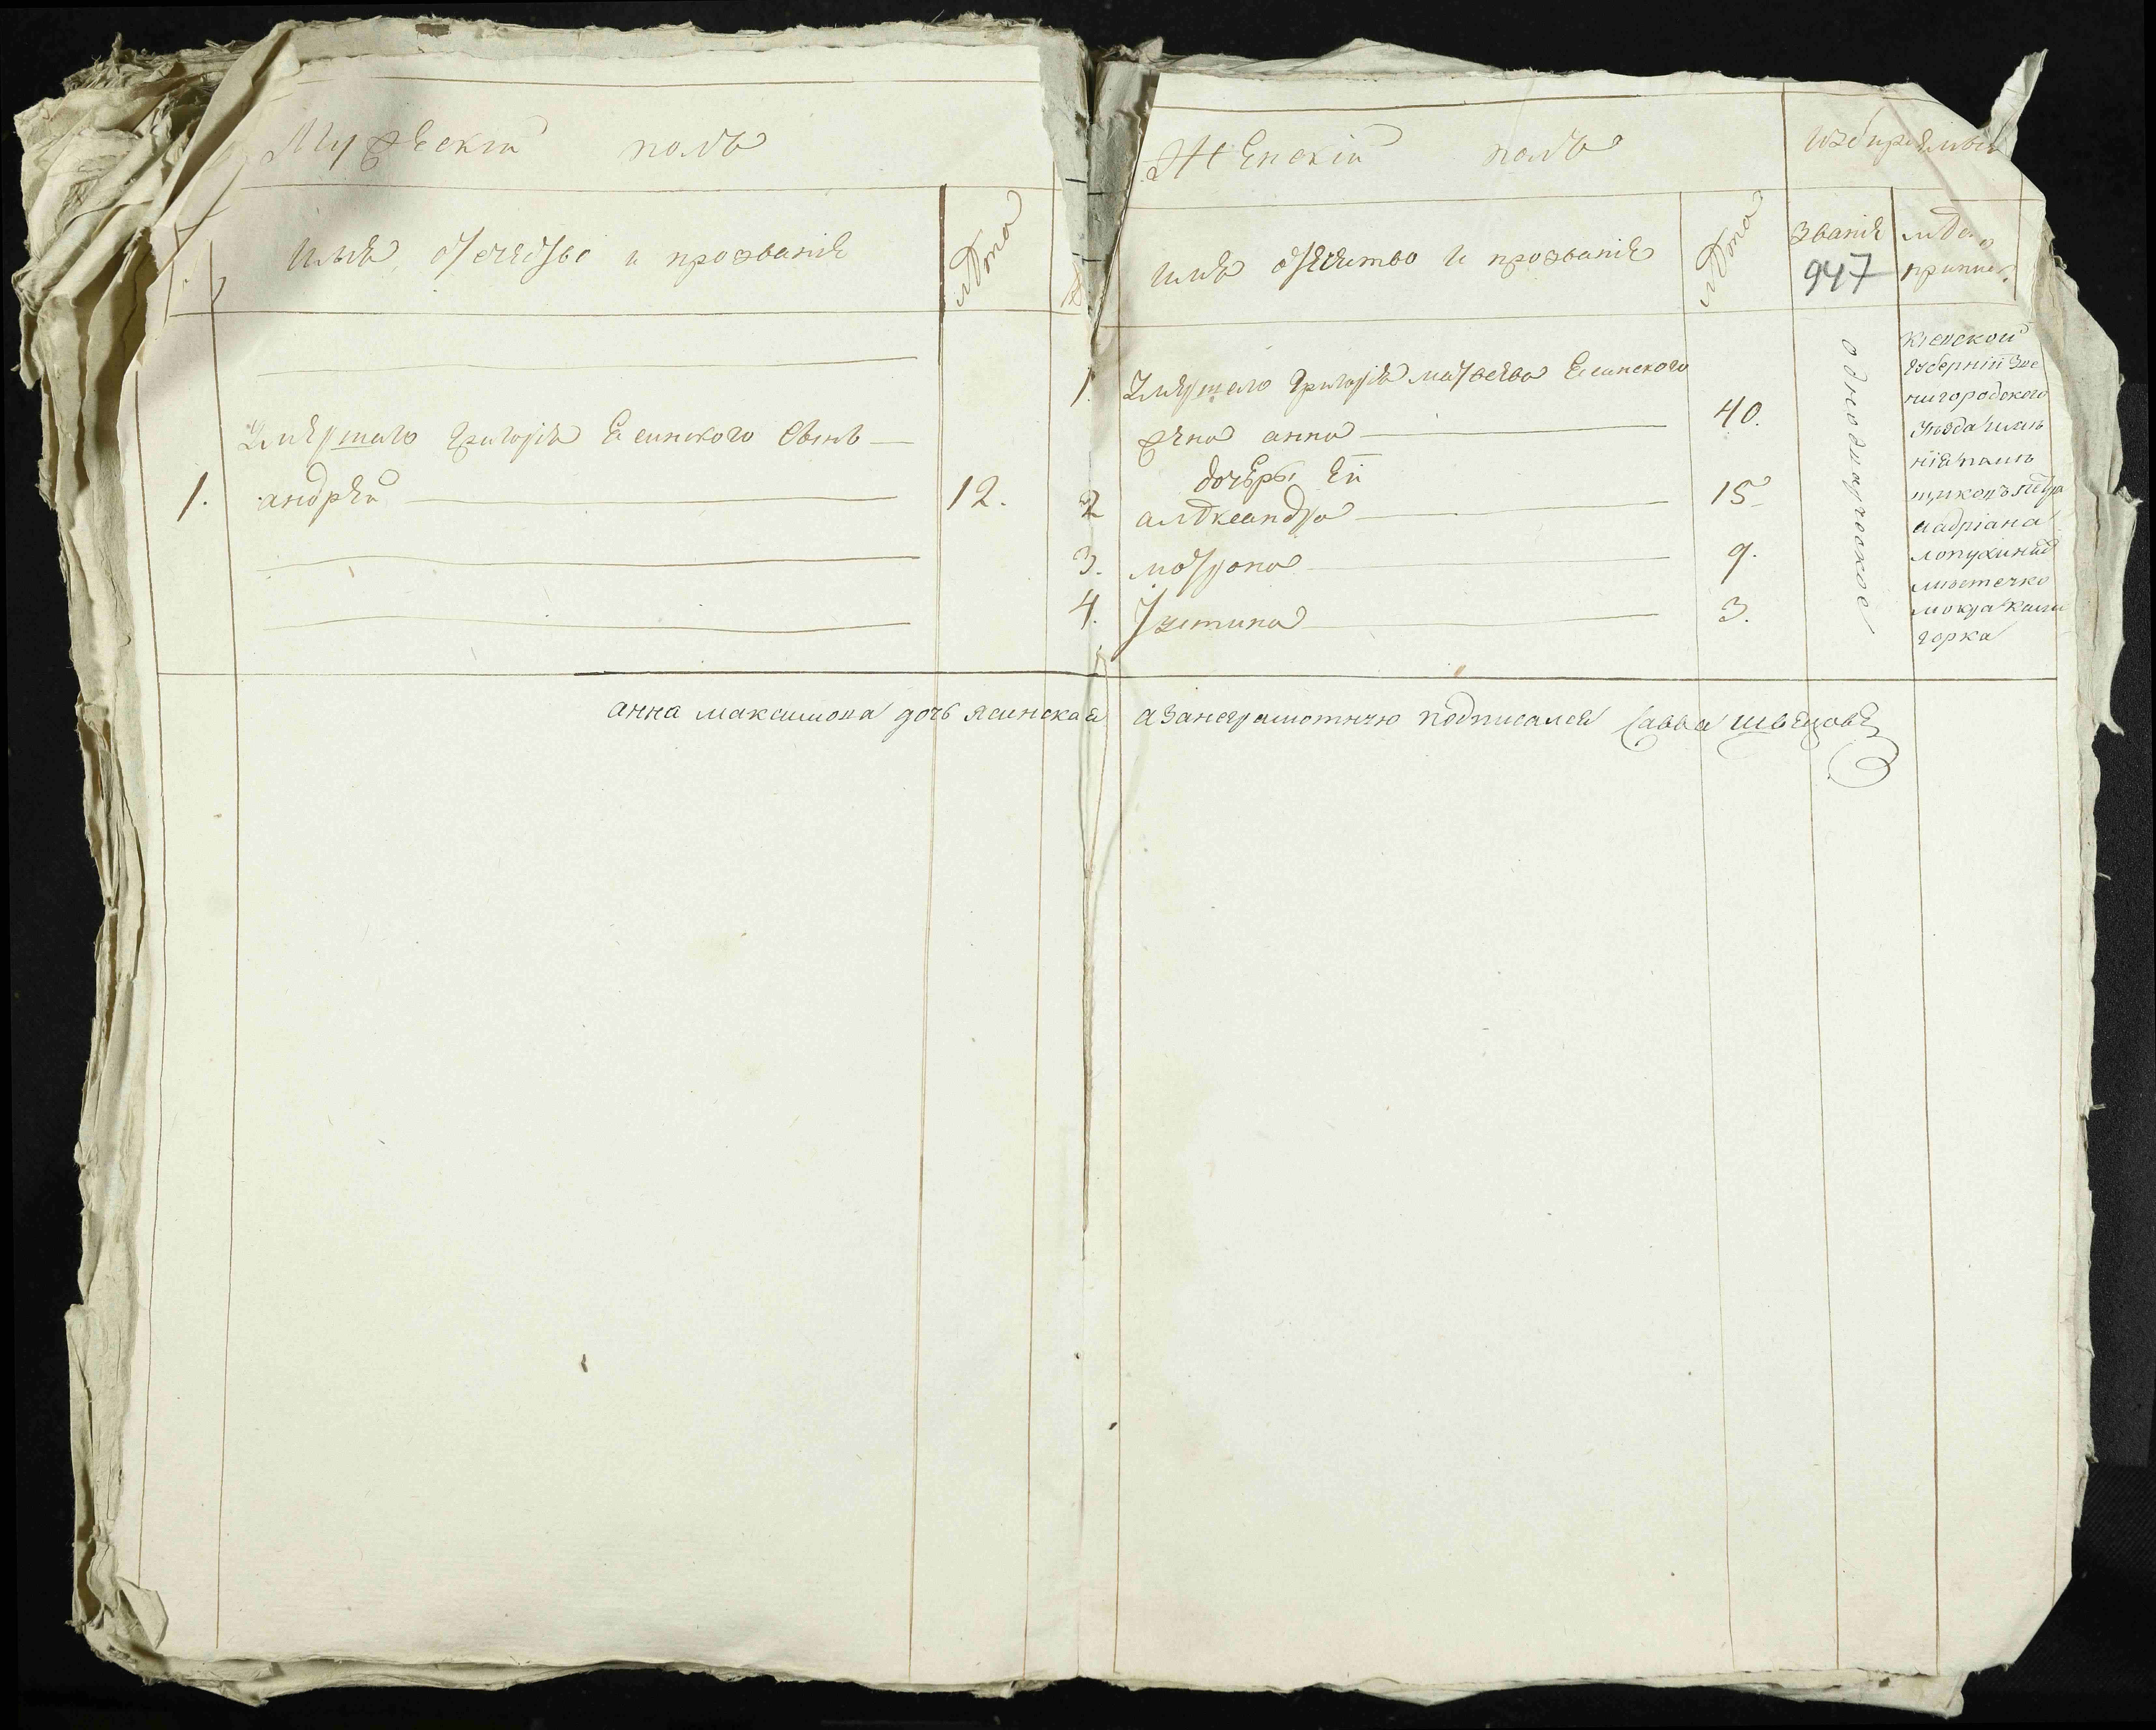 Мужескій полъ
Имя, отечество и прозваніе
лѣта
Умершаго Григорія Есинского сынъ
1. андрей 12.
Женскій полъ
имя отечество и прозваніе
лѣта
званіе
947
1. Умершаго Григорія матвеева Есинского
жена анна 40.
дочеры Ей
2 алѣксандра 15
3. матрона 9.
4. Устина 3.
однодворческое
Кіевской
губерніи Зве
нигородского
уезда имѣ
нія помѣ
щиковъ петра
иадріана
лопухиныхъ
мистечко
мокра кали
горка
анна максимова дочь ясинская а занеграмотную подписался Савва Швецовъ